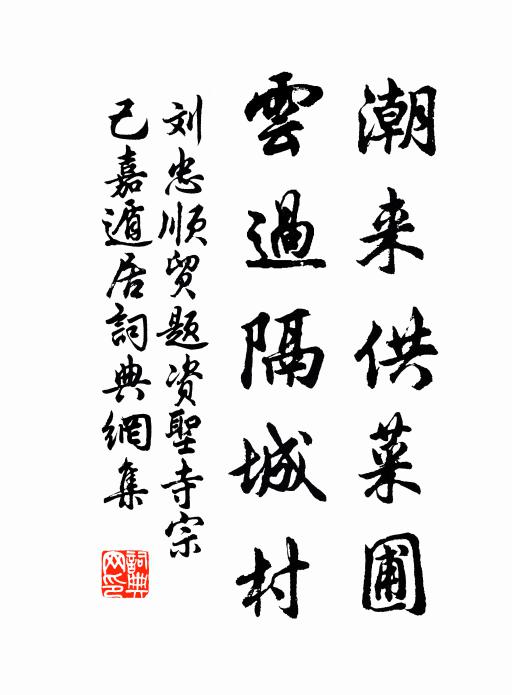 潮来供菜圃
雲過隔城村
刘忠顺貿题资聖寺宗
己嘉遁居詞典網集
詞典网印